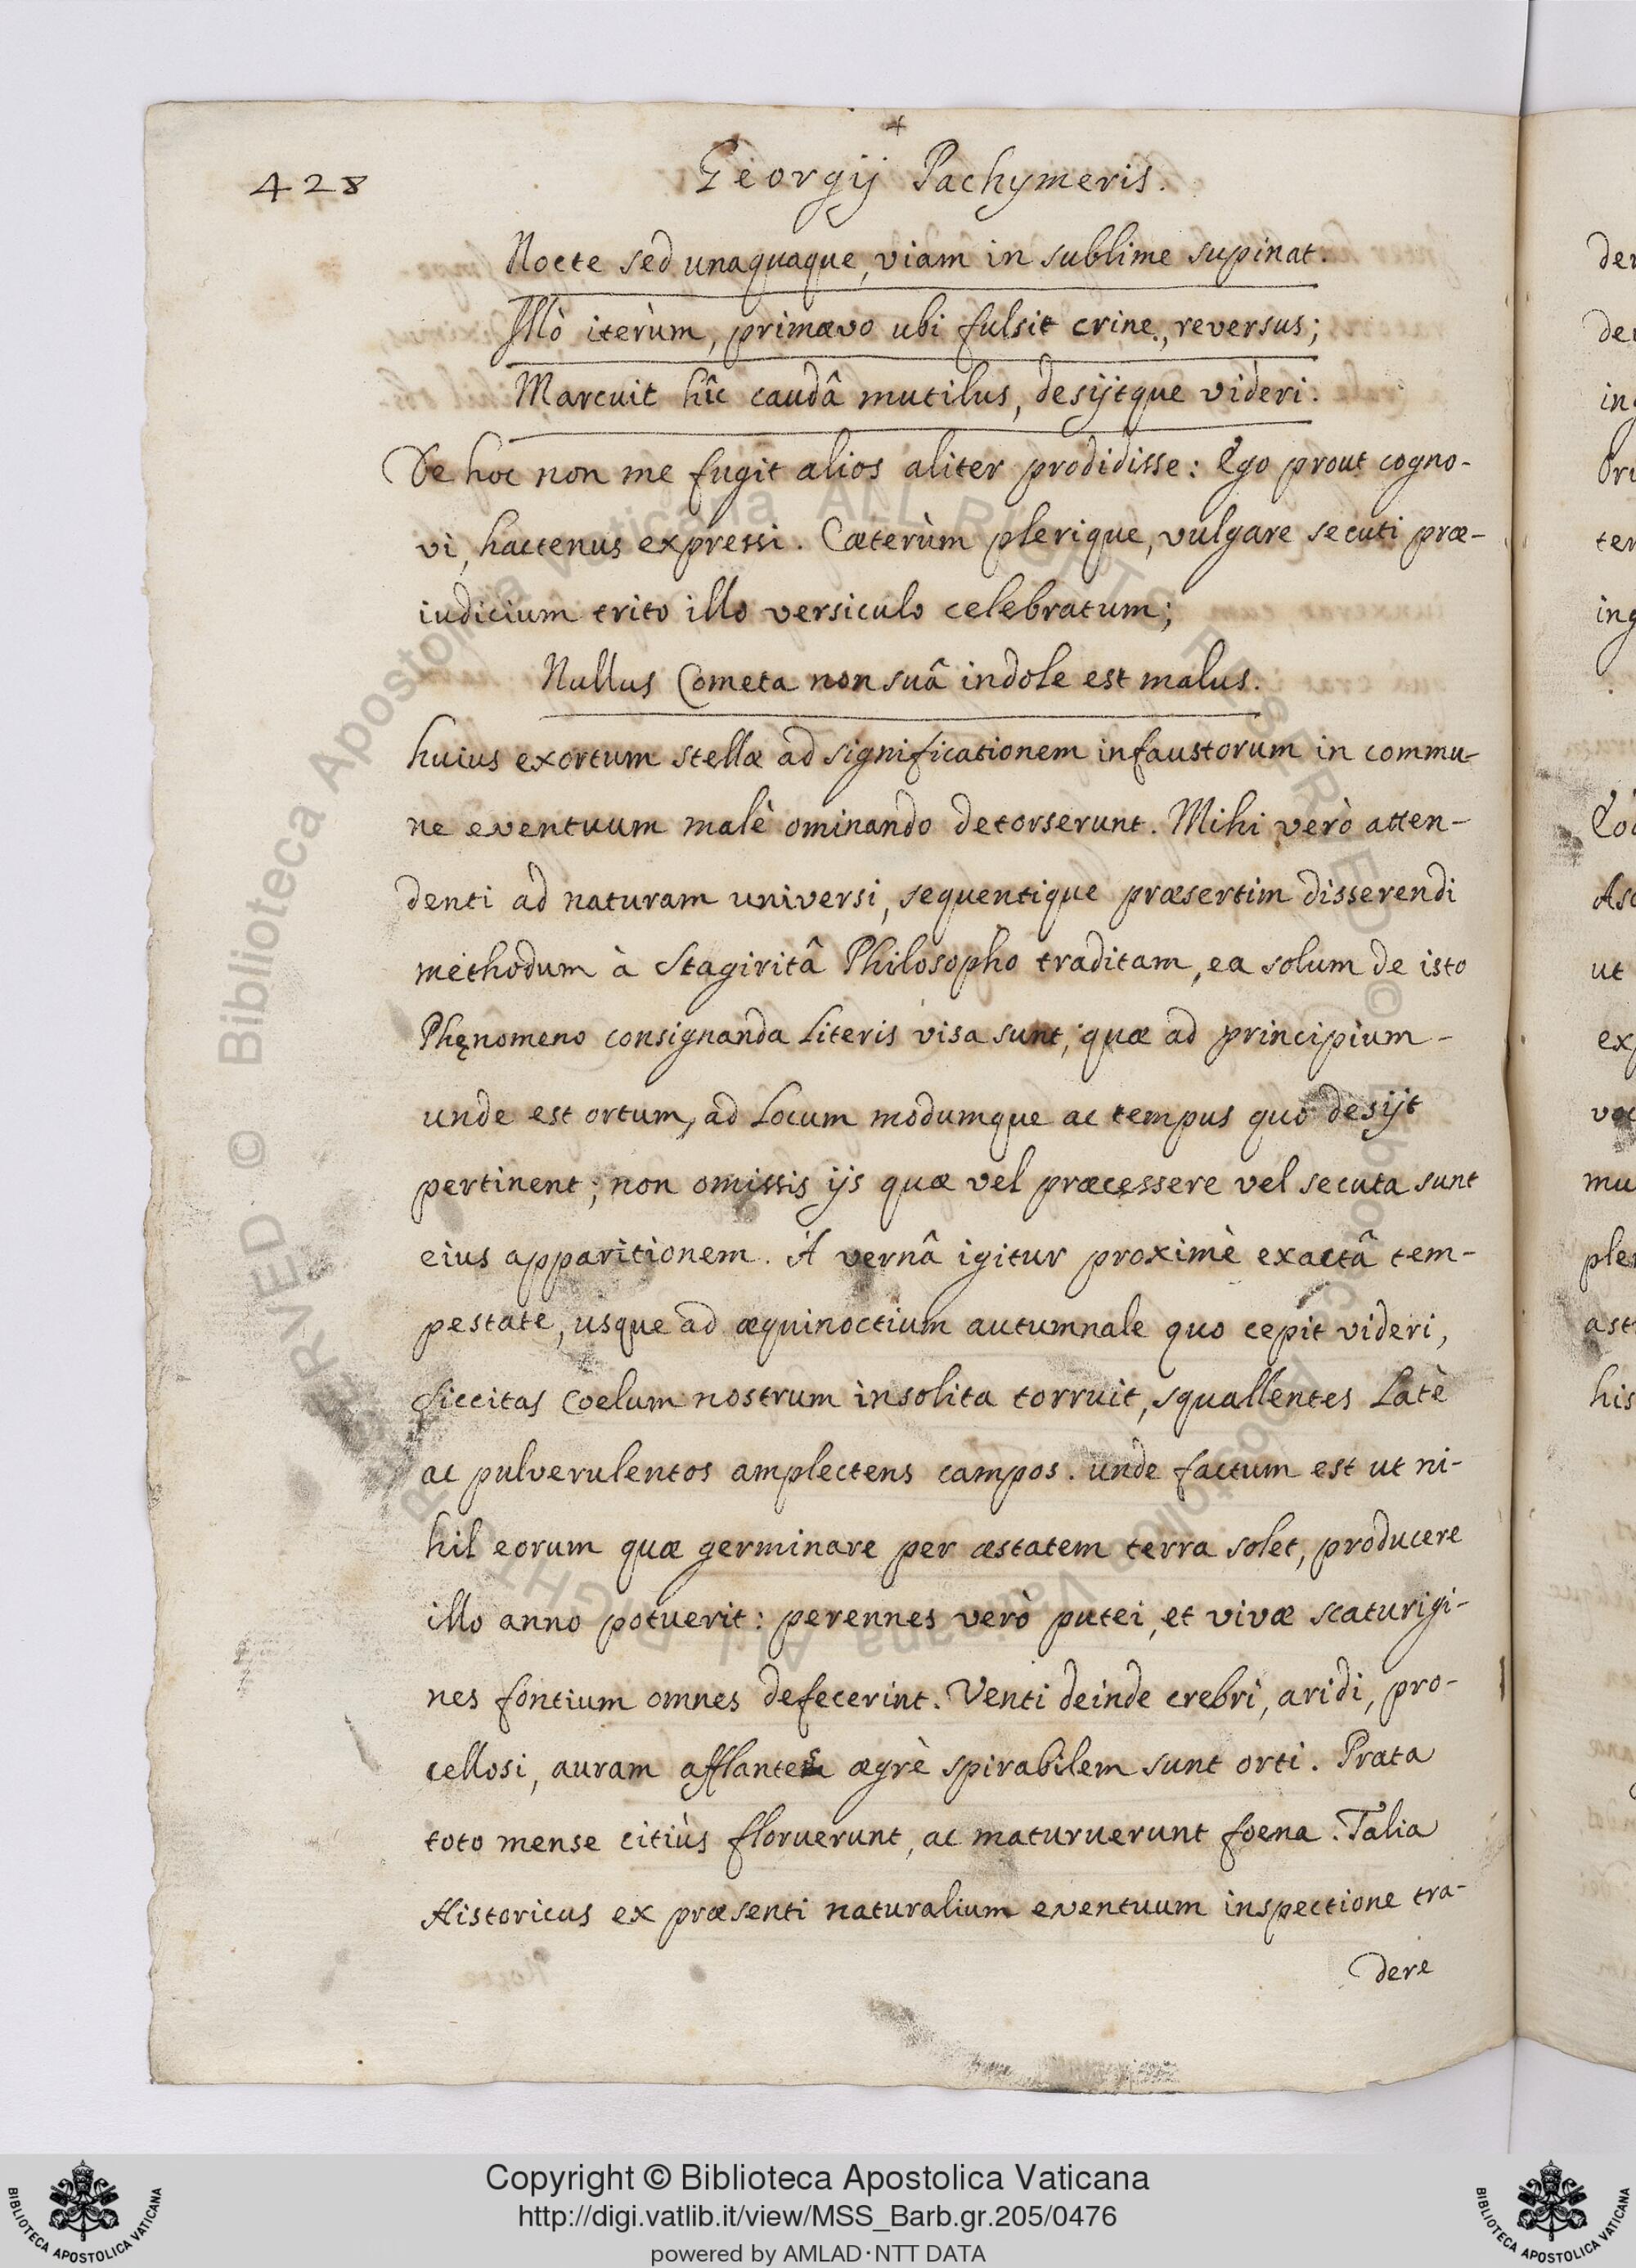 428
Georgij Pachymeris.
Nocte sed unaquaque, viam in sublime supinat.
Illò iterùm, primævo ubi fulsit crine, reversus;
Marcuit hîc caudâ mutilus, desijtque videri.
De hoc non me fugit alios aliter prodidisse: Ego prout cogno-
vi, hactenus expressi. Cæterùm plerique, vulgare secuti præ-
iudicium trito illo versiculo celebratum;
Nullus Cometa non suâ indole est malus.
huius exortum stellæ ad significationem infaustorum in commu-
ne eventuum malè ominando detorserunt. Mihi verò atten-
denti ad naturam universi, sequentique præsertim disserendi
methodum à Stagiritâ Philosopho traditam, ea solum de isto
Phęnomeno consignanda Literis visa sunt, quæ ad principium-
unde est ortum, ad Locum modumque ac tempus quo desijt
pertinent; non omissis ijs quæ vel præcessere vel secuta sunt
eius apparitionem. A vernâ igitur proximè exactâ tem-
pestate, usque ad æquinoctium autumnale quo cepit videri,
Siccitas Coelum nostrum insolita torruit, squallentes Latè
ac pulverulentos amplectens campos. unde factum est ut ni-
hil eorum quæ germinare per æstatem terra solet, producere
illo anno potuerit: perennes verò putei, et vivæ scaturigi-
nes fontium omnes defecerint. Venti deinde crebri, aridi, pro-
cellosi, auram afflantes ægrè spirabilem sunt orti. Prata
toto mense citiùs floruerunt, ac maturuerunt foena. Talia
Historicus ex præsenti naturalium eventuum inspectione tra-
dere
Copyright © Biblioteca Apostolica Vaticana
http://digi.vatlib.it/view/MSS_Barb.gr.205/0476
powered by AMLAD·NTT DATA
BIBLIOTECA APOSTOLICA VATICANA
BIBLIOTECA APOSTOLICA VATICANA